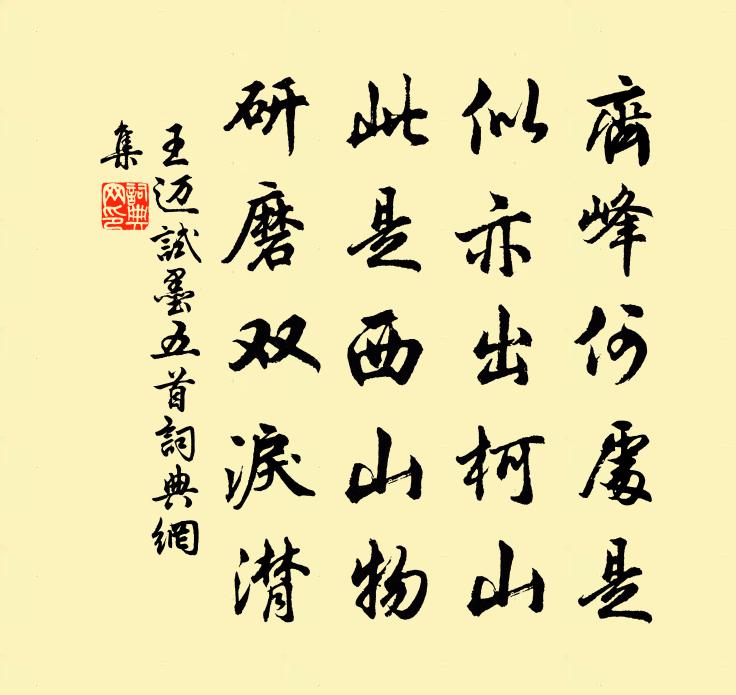 齊峰何處是
似亦出柯山
此是西山物
研磨双淚潸
王迈試墨五首詞典網
集
詞典网印